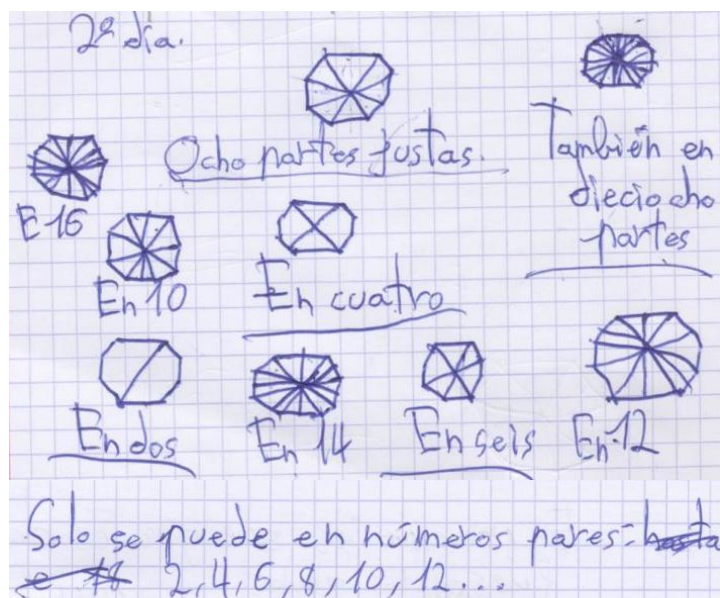 2º día.
Ocho partes justas.
También en
dieciocho
partes
E 16
En 10
En cuatro
En dos
En 14
En seis
En 12
Solo se puede en números pares: hasta
2, 4, 6, 8, 10, 12...